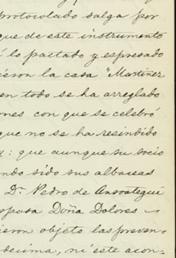 protocolado salga por
que de este instrumento
lo pactado y expresado
la casa Martinez
en todo se ha arreglado
ones con que se celebró
que no se ha rescindido
: que aunque su socio
ndo sido sus albaceas
Dn. Pedro de Ansoategui
sposa Doña Dolores
ieron objeto las preven-
écima, ni este acon-